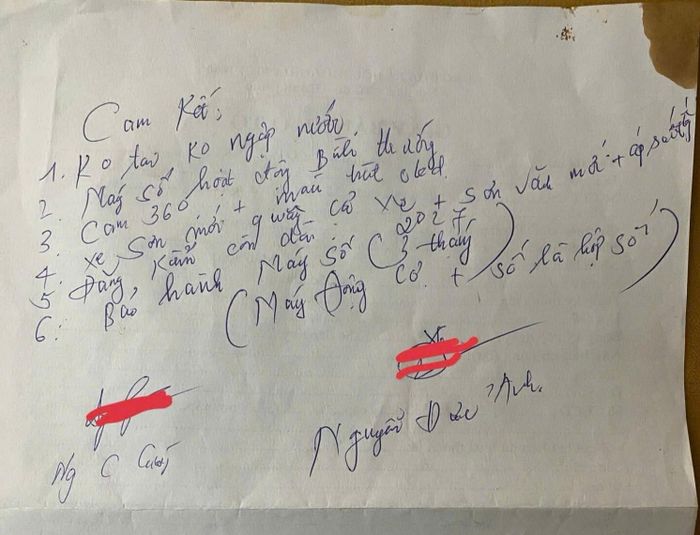 Cam Kết;
1. Ko tai Ko ngập nước
2. Máy số hoạt động Bình thường
3. Cam 360 + màn hình oled.
4. Xe sơn mới quây cả xe + sơn vành mới + áp suất lốp
5 Đăng Kiểm còn dài 2027
6: Bảo hành Máy số (3 tháng)
(Máy Động Cơ + số là hộp số)
Nguyễn Đức Anh.
Ng C